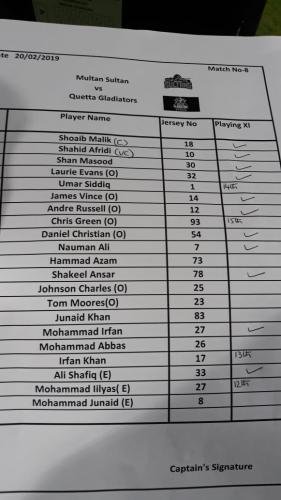 ate 20/02/2019
Match No-8
Multan Sultan
vs
Quetta Gladiators
Player Name Jersey No Playing XI
Shoaib Malik (C) 18 ✓
Shahid Afridi (VC) 10 ✓
Shan Masood 30 ✓
Laurie Evans (O) 32 ✓
Umar Siddiq 1 14th
James Vince (O) 14 ✓
Andre Russell (O) 12 ✓
Chris Green (O) 93 15th
Daniel Christian (O) 54 ✓
Nauman Ali 7 ✓
Hammad Azam 73
Shakeel Ansar 78 ✓
Johnson Charles (O) 25
Tom Moores(O) 23
Junaid Khan 83
Mohammad Irfan 27 ✓
Mohammad Abbas 26
Irfan Khan 17 13th
Ali Shafiq (E) 33 ✓
Mohammad Iilyas( E) 27 12th
Mohammad Junaid (E) 8
Captain's Signature